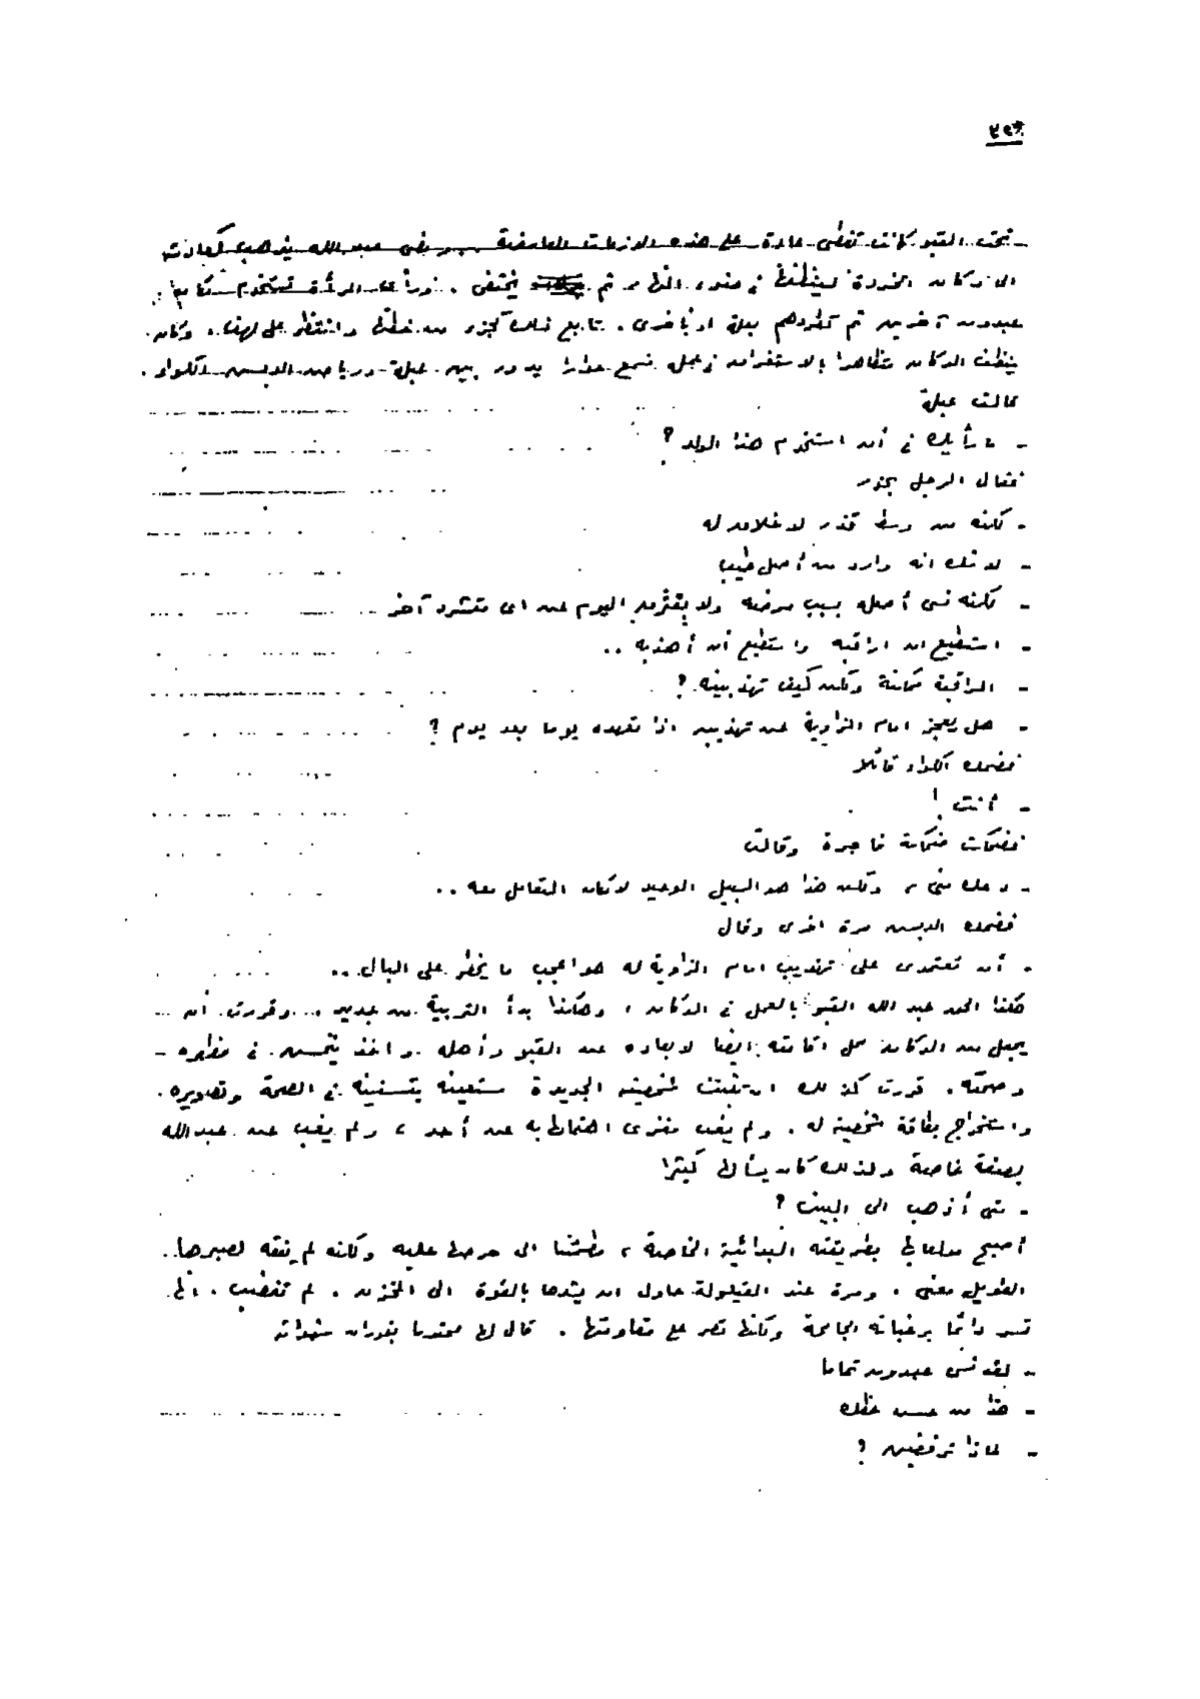 ٢٩٢
تحت القبو كانت تغطى عادة على هذه النزعات العاطفية .. ومضى عبد الله يذهب كعادته
الى دكان الخردة لينظفها فى ضوء النهار ثم يختفى .
عبدون آخرين ثم تطردهم بعلة او بأخرى . تابع ذلك بحذر من خطفها وانتظر على لهف ، وكان
ينظف الدكان متظاهرا بالاستغراق فى عمله فسمع حوارا يدور بين عبلة ورياض الدبس الكواء .
قالت عبلة
- ما رأيك فى أن استخدم هذا الولد ؟
فقال الرجل بحذر
- لكنه من وسط قذر لا خلاق له
- لا شك انه وارد من أصل طيب
- لكنه نسى أصله بسبب مرضه ولا يفترق اليوم عن اى متشرد آخر
- استطيع ان اراقبه واستطيع أن أهذبه ..
- المراقبة ممكنة ولكن كيف تهذبينه ؟
- هل يعجز امام الزاوية عن تهذيبه اذا تعهده يوما بعد يوم ؟
فضحك الكواء قائلا
- أنت !
فضحكت ضحكة فاجرة وقالت
- دعك منى ، ولكن هذا هو السبيل الوحيد لامكان التعامل معه ..
فضحك الدبس مرة اخرى وقال
- أن تعتمدى على تهذيب امام الزاوية له هو اعجب ما يخطر على البال ..
هكذا الحق عبد الله القبو بالعمل فى الدكان ، وهكذا بدأ التربية من جديد ... وقررت أن
يجعل من الدكان محل اقامته ايضا لابعاده عن القبو وأهله . واخذ يتحسن فى مظهره
وصحته . قررت كذلك ان تثبت شخصيته الجديدة مستعينة بتسنينه فى الصحة وتصويره
واستخراج بطاقة شخصية له . ولم يغب مغزى اهتمامها به عن أحد ، ولم يغب عن عبد الله
بصفة خاصة ولذلك كان يسألها كثيرا
- متى أذهب الى البيت ؟
أصبح مولعا بها بطريقته البدائية الخاصة ، مطمئنا الى حرصها عليه وكأنه لم يفقه لصبرها
الطويل معنى ، ومرة عند القيلولة حاول ان يشدها بالقوة الى المخزن . لم تغضب . انها
تسر دائما برغباته الجامحة ولكنها تصر على مقاومتها . قال لها محتدما بفوران شهواته
- لقد نسى عبدون تماما
- هذا من حسن حظك
- لماذا ترفضين ؟